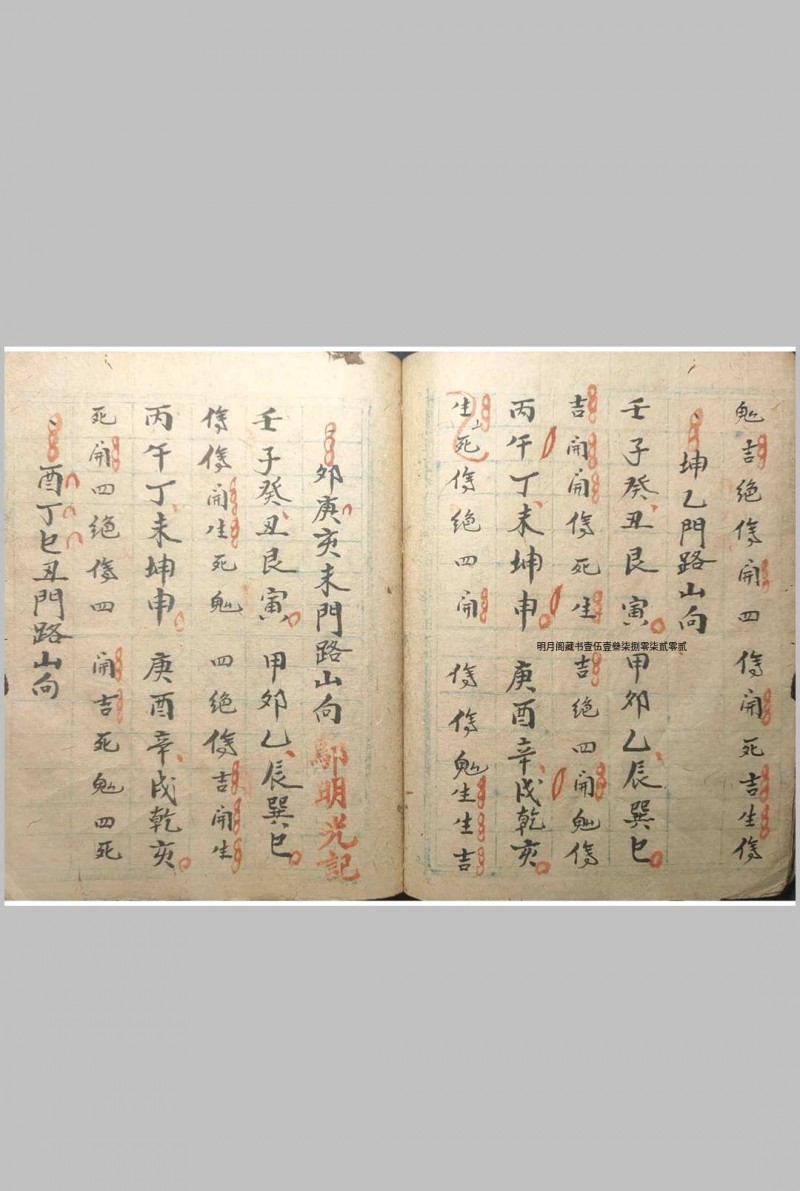 鬼吉絶傷開四傷開死吉生傷
坤乙門路山向
壬子癸丑艮寅甲卯乙辰巽巳
吉開開傷死生吉絶四開鬼傷
丙午丁未坤申庚酉辛戌乾亥
生死傷絶四開傷傷鬼生生吉
卯庚亥未門路山向
明記
壬子癸丑艮寅甲卯乙辰巽巳
傷傷開生死鬼四絶傷吉開生
丙午丁未坤申庚酉辛戌乾亥
死開四絶傷四開吉死鬼四死
酉丁巳丑門路山向
明月阁藏书壹伍壹叁柒捌零柒贰零贰